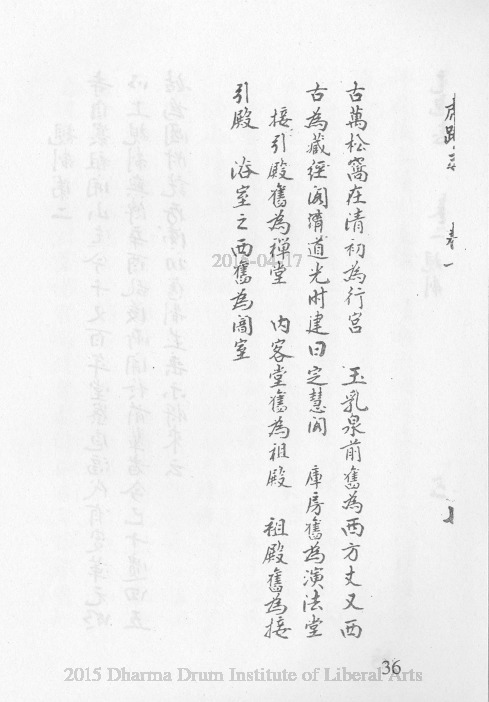 虎跑志　卷一
古萬松窩在清初為行宮　玉乳泉前舊為西方丈又西
古為藏經閣清道光时建曰定慧閣　庫房舊為演法堂
接引殿舊為禅堂　内客堂舊為祖殿　祖殿舊為接
引殿　浴室之西舊為閣室
2015-04-17
36
2015 Dharma Drum Institute of Liberal Arts